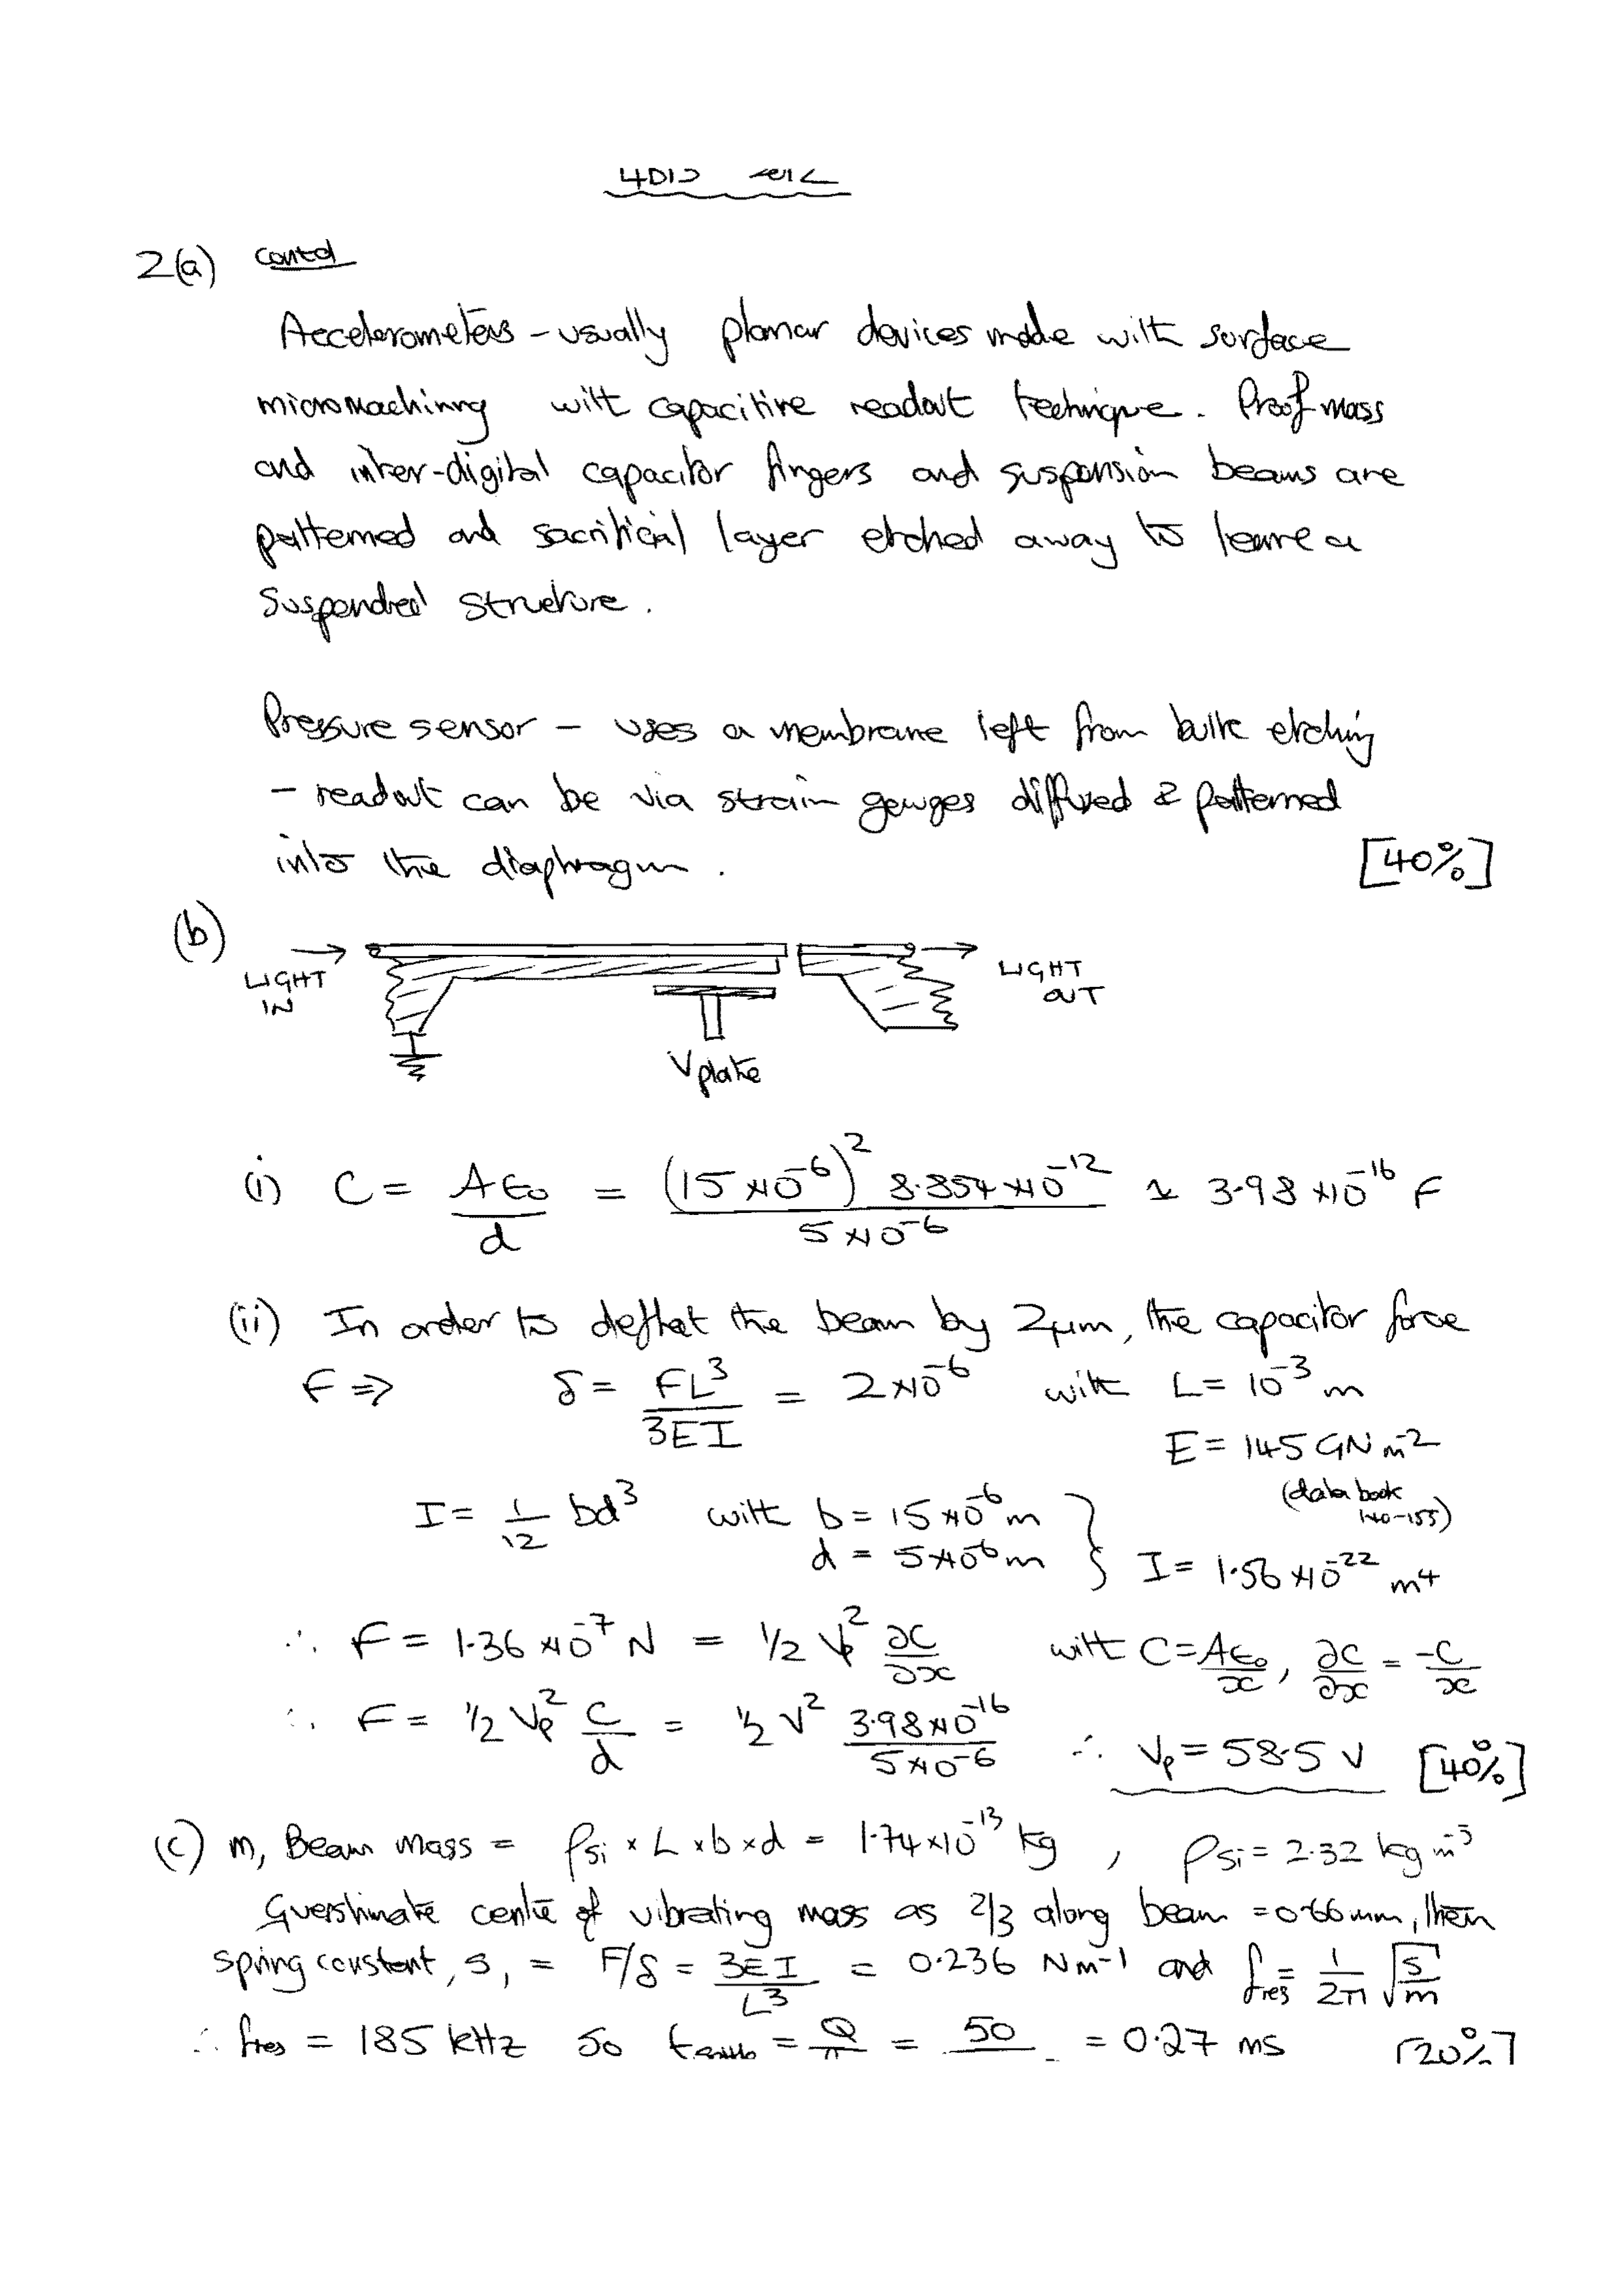 2(a) contd
Accelerometers - usually planar devices made with surface
micromachining with capacitive readout technique. Proof mass
and inter-digital capacitor fingers and suspension beams are
patterned and sacrificial layer etched away to leave a
suspended structure.
Pressure sensor - uses a membrane left from bulk etching
- readout can be via strain gauges diffused & patterned
into the diaphragm.
[40%]
(b)
LIGHT IN
LIGHT OUT
Vplate
(i) C = Aε₀/d = (15×10⁻⁶)² 8.854×10⁻¹² / 5×10⁻⁶ ≈ 3.98×10⁻¹⁶ F
(ii) In order to deflect the beam by 2μm, the capacitor force
F ⇒ δ = FL³/3EI = 2×10⁻⁶ with L = 10⁻³ m
E = 145 GN m⁻²
(data book 140-155)
I = 1/12 bd³ with b = 15×10⁻⁶ m
d = 5×10⁻⁶ m } I = 1.56×10⁻²² m⁴
∴ F = 1.36×10⁻⁷ N = 1/2 Vp² ∂C/∂x with C = Aε₀/x, ∂C/∂x = -C/x
∴ F = 1/2 Vp² C/d = 1/2 V² 3.98×10⁻¹⁶ / 5×10⁻⁶ ∴ Vp = 58.5 V [40%]
(c) m, Beam mass = ρsi × L × b × d = 1.74×10⁻¹³ kg, ρsi = 2.32 kg m⁻³
Guesstimate centre of vibrating mass as 2/3 along beam = 0.66 mm, then
spring constant, s, = F/δ = 3EI/L³ = 0.236 Nm⁻¹ and fres = 1/2π √(s/m)
∴ fres = 185 kHz so = Q/π = 50 = 0.27 ms [20%]